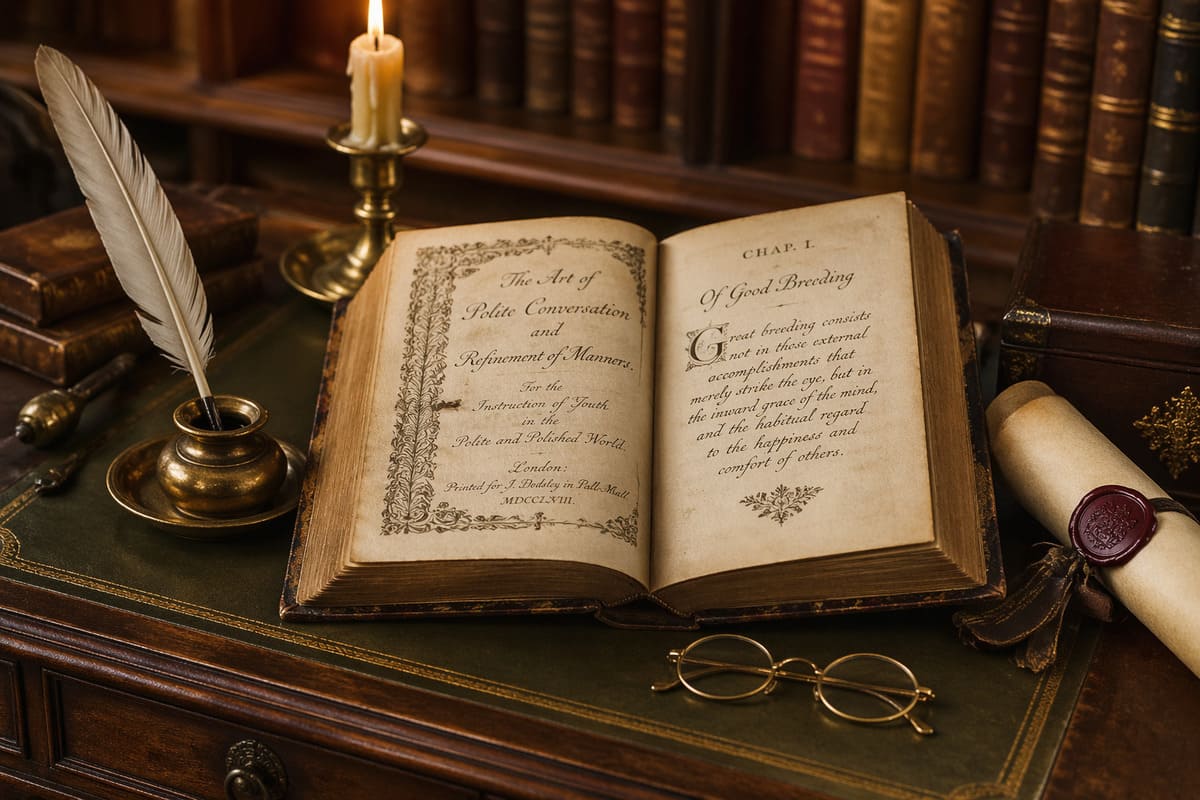 The Art of
Polite Conversation
and
Refinement of Manners.
For the
Instruction of Youth
in the
Polite and Polished World.
London:
Printed for J. Dodsley in Pall-Mall.
MDCCLVIII.
CHAP. I.
Of Good Breeding
Great breeding consists
not in those external
accomplishments that
merely strike the eye, but in
the inward grace of the mind,
and the habitual regard
to the happiness and
comfort of others.